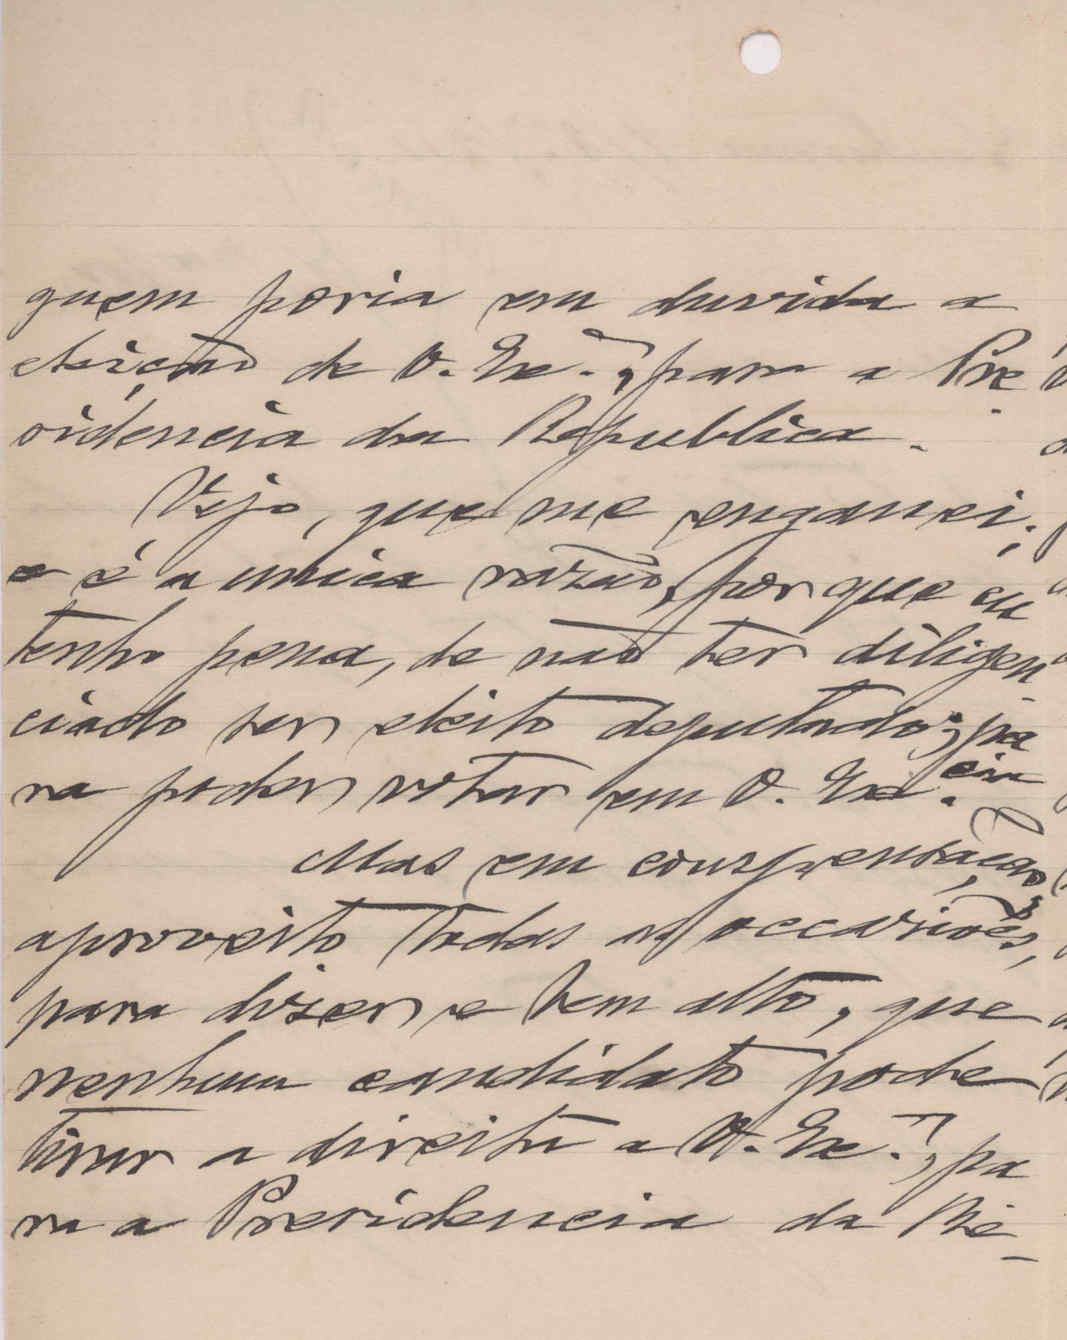 quem poria em duvida a
eleição de V. Exª., para a Pre
sidencia da Republica.
Vejo, que me enganei;
e é a unica razão, por que eu
tenho pena, de não ter diligen
ciado ser eleito deputado; pa
ra poder votar em V. Exª. cia
Mas em compensação,
aproveito todas as occasiões,
para dizer, e bem alto, que
nenhum candidato pode
tirar a direita a V. Exª., pa
ra a Presidencia da Re-